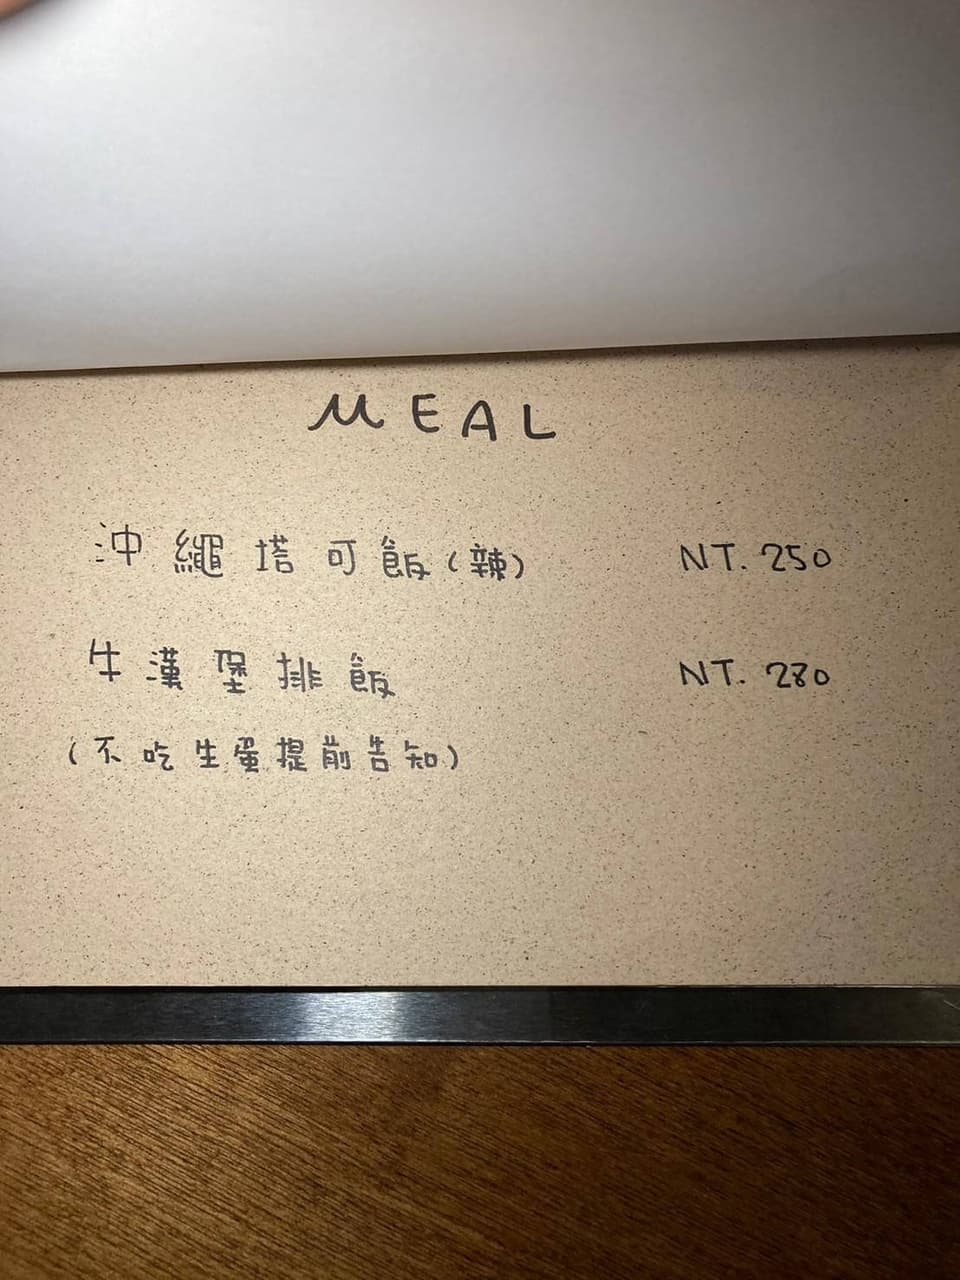 MEAL
沖繩塔可飯(辣) NT. 250
牛漢堡排飯 NT. 280
(不吃生蛋提前告知)